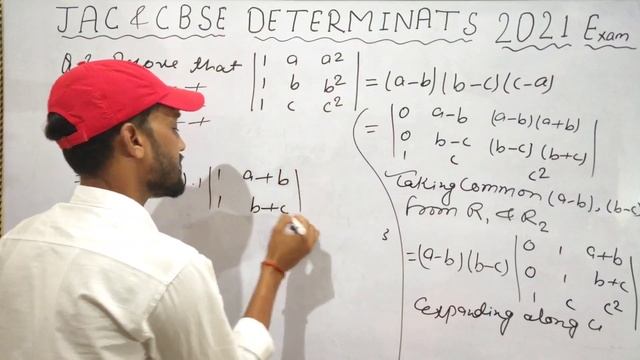 JAC & CBSE DETERMINATS 2021 Exam
Prove that | 1 a a2 |
| 1 b b² | = (a-b)(b-c)(c-a)
| 1 c c² |
1 | 1 a+b |
| 1 b+c |
= | 0 a-b (a-b)(a+b) |
| 0 b-c (b-c)(b+c) |
| 1 c c² |
Taking Common (a-b), (b-c)
from R₁ & R₂
= (a-b)(b-c) | 0 1 a+b |
| 0 1 b+c |
| 1 c c² |
expanding along C₁